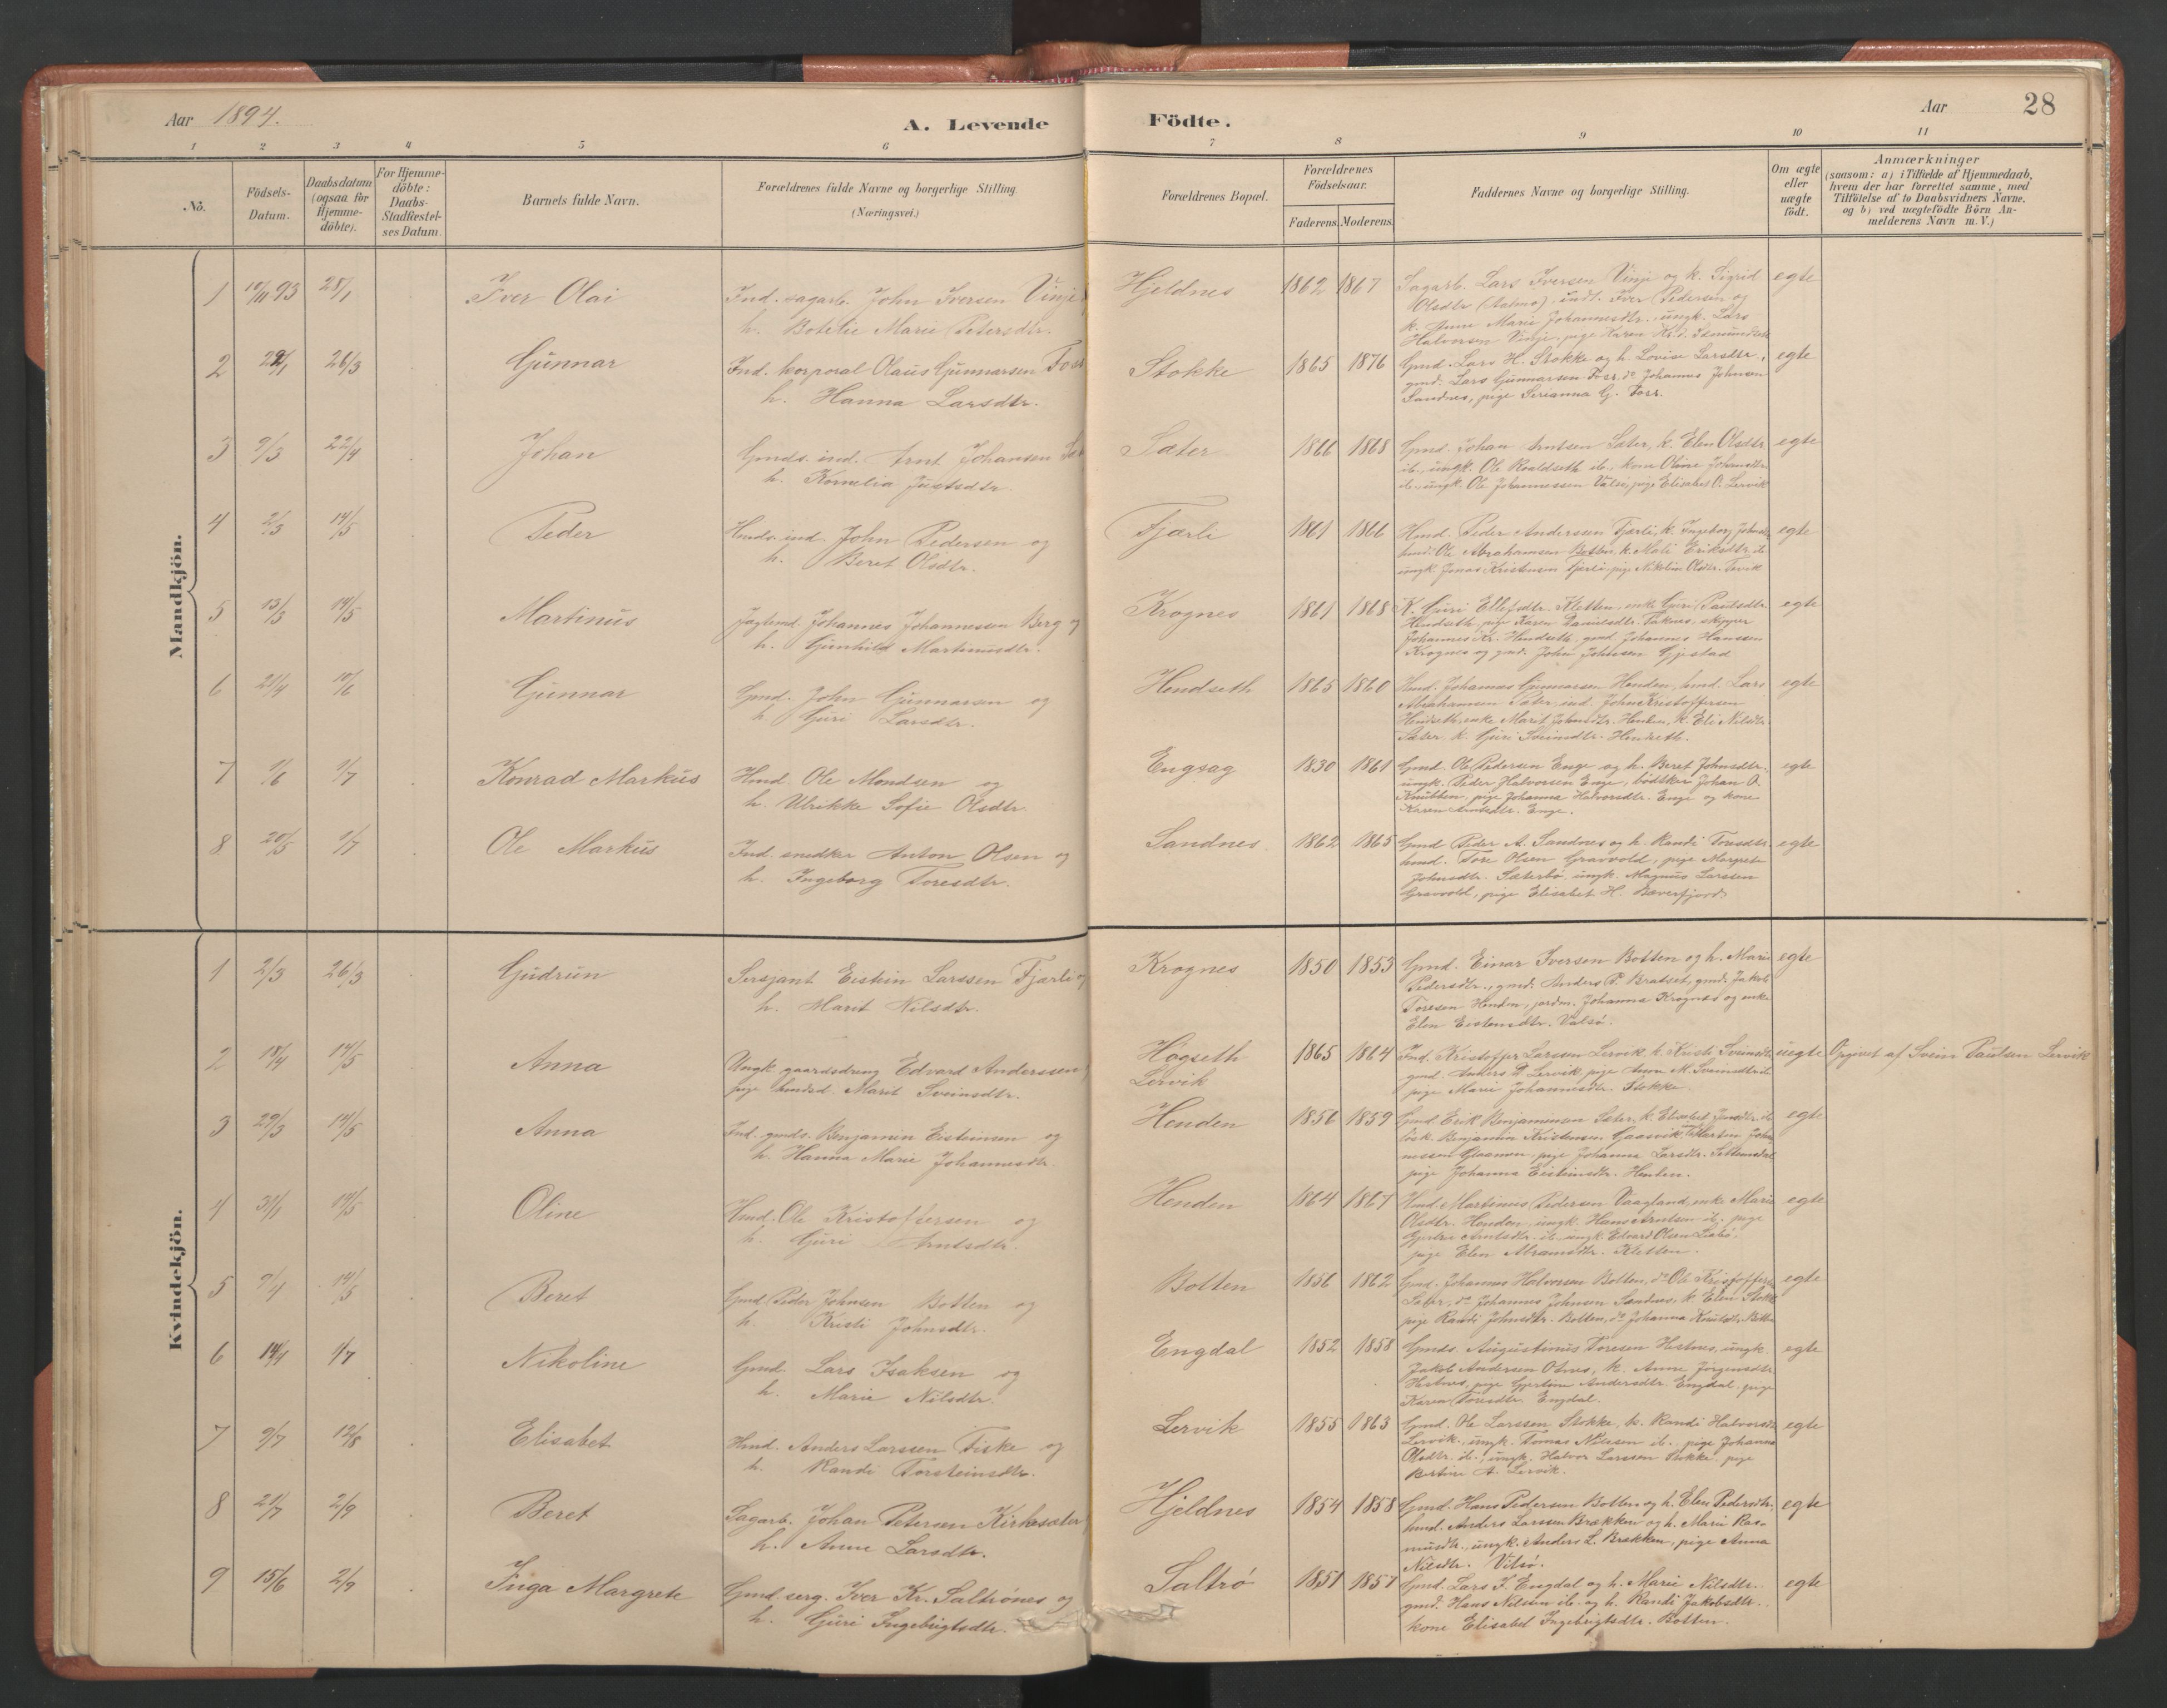 Aar 1894.
A. Levende
Födte.
Aar
28
1 2 3 4 5 6 7 8 9 10 11
No.
Födsels-
Datum.
Daabsdatum
(ogsaa for
Hjemme-
döbte).
For Hjemme-
döbte:
Daabs-
Stadfæstel-
ses Datum.
Barnets fulde Navn.
Forældrenes fulde Navne og borgerlige Stilling.
(Næringsvei.)
Forældrenes Bopæl.
Forældrenes
Födselsaar.
Faderens. Moderens.
Faddernes Navne og borgerlige Stilling.
Om ægte
eller
uægte
födt.
Anmærkninger
(saasom: a) i Tilfælde af Hjemmedaab,
hvem der har forrettet samme, med
Tilföielse af to Daabsvidners Navne.
og b) ved uægtefödte Börn An-
melderens Navn m. V.)
Mandkjön.
1 10/11 93 28/1 Iver Olai Ind. sagarb. John Iversen Vinje
h. Botilie Marie Petersdtr.
Hjeldnes 1862 1867 Sagarb. Lars Iversen Vinje og k. Sigrid egte
Olsdtr (Aalmo), indt. Iver Pedersen og
k. Anne Marie Johannesdtr., ungk. Lars
Halvorsen Vinje, pige Karen Kr.d.
2 26/3 Gunnar Ind. korporal Olaus Gunnarsen Foss
h. Hanna Larsdtr.
Stokke 1865 1876 Gmd. Lars H. Stokke og h. Lovise Larsdtr, egte
gmd. Lars Gunnarsen Foss, do Johannes Johnsen
Sandnes, pige Serianna G. Foss.
3 9/3 22/4 Johan Gmds. ind. Arnt Johansen
h. Kornelia Justsdtr.
Sæter 1866 1868 Gmd. Johan Arntsen Sæter, k. Elen Olsdtr egte
ib., ungk. Ole Roaldseth ib., kone Oline Johansdtr.
ib., ungk. Ole Johannessen Valsö, pige Elisabet O. Lervik
4 2/3 14/5 Peder Hmds. ind. John Pedersen og
h. Beret Olsdtr.
Fjærli 1861 1866 Hmd. Peder Andersen Fjærli, k. Ingeborg egte
hmd. Ole Abrahamsen Botten, k. Mali Eriksdtr. ib
ungk. Jonas Kristensen Fjærli, pige Nikoline Olsdtr.
5 13/3 14/5 Martinus Jagtemd. Johannes Johannessen Berg og
h. Gunhild Martinusdtr.
Krognes 1861 1868 K. Guri Ellefsdtr. Kletten, enke Guri Paulsdtr. egte
Hendseth, pige Karen Danielsdtr. skipper
Johannes Kr. Hendseth, gmd. Johannes Hanssen
Krognes og gmd. John Johnsen Gjestad
6 21/4 10/6 Gunnar Gmd. John Gunnarsen og
h. Guri Larsdtr.
Hendseth 1865 1860 Hmd. Johannes Gunnarsen Henden, hmd. Lars egte
Abrahamsen Sæter, ind. John Kristoffersen
Hendseth, enke Marit Johnsdtr. Henden, k. Eli Nilsdtr.
Sæter, k. Guri Sveinsdtr. Hendseth.
7 1/6 1/7 Konrad Markus Hmd. Ole Mondsen og
h. Ulrikke Sofie Olsdtr
Engsag 1830 1861 Gmd. Ole Pedersen Enge og h. Beret Johnsdtr., egte
ungk. Peder Halvorsen Enge, bødtker Johan O.
Knubben, pige Johanna Halvorsdtr. Enge og kone
Karen Arntsdtr. Enge.
8 20/5 1/7 Ole Markus Ind. snedker Anton Olsen og
h. Ingeborg Toresdtr.
Sandnes. 1862 1865 Gmd Peder A. Sandnes og h. Randi Toresdtr egte
hmd. Tore Olsen Gravvold, pige Margrete
Johnsdtr. Sæterbö, ungk. Magnus Larssen
Gravvold, pige Elisabet H. Bæverfjord
Kvindekjön.
1 2/3 26/3 Gudrun Sersjant Eistein Larssen Fjærli og
h. Marit Nilsdtr.
Krognes 1850 1853 Gmd. Einar Iversen Botten og h. Marie egte
Pedersdtr., gmd. Anders P. Bradset, gmd. Jakob
Toresen Henden, jordm. Johanna Krognæs og enke
Elen Eisteinsdtr. Valsö.
2 18/4 14/5 Anna Ungk. gaardsdreng Edvard Anderssen,
pige Marit Sveinsdtr.
Högseth
Lervik
1865 1864 Ind. Kristoffer Larssen Lervik, k. Kristi Sveinsdtr. uegte Opgivet af Svein Paulsen Lervik
gmd. Anders P. Lervik, pige Anne M. Sveinsdtr ib
pige Marie Johannesdtr. Stokke.
3 29/3 14/5 Anna Ind. gmds. Benjamin Eisteinsen og
h. Hanna Marie Johannesdtr.
Henden 1856 1859 Gmd. Erik Benjaminsen Sæter, k. Elisabet Jonsdtr. ib egte
Benjamin Kristensen Gaasvik, Martin Johan-
nessen Glasmon, pige Johanna Larsdtr. Settemsdal
pige Johanna Eisteinsdtr. Henden.
4 31/1 14/5 Oline Hmd. Ole Kristoffersen og
h. Guri Arntsdtr.
Henden 1864 1867 Hmd. Martinus Pedersen Vaagland, enke Marie egte
Olsdtr. Henden, ungk. Hans Arntsen ib., pige
Gjertrü Arntsdtr. ib. ungk. Edvard Olsen
pige Elen Abramsdtr. Kletten.
5 9/4 14/5 Beret Gmd. Peder Johnsen Botten og
h. Kristi Johnsdtr.
Botten 1856 1862 Gmd. Johannes Halvorsen Botten, do Ole Kristoffers. egte
Sæter, do Johannes Johnsen Sandnes, k. Elen Stokke
pige Randi Johnsdtr. Botten, do Johanna Knutsdtr. Botten
6 14/4 1/7 Nikoline Gmd. Lars Isaksen og
h. Marie Nilsdtr.
Engdal 1852 1858 Gmds. Augustinus Toresen Hestnes, ungk. egte
Jakob Andersen Otnes, k. Anne Jørgensdtr
Hestnes, pige Gjertine Andersdtr. Engdal, pige
Karen Toresdtr. Engdal.
7 9/7 12/8 Elisabet Hmd. Anders Larssen Fiske og
h. Randi Torsteinsdtr.
Lervik 1855 1863 Gmd. Ole Larssen Stokke, k. Randi Halvorsdtr egte
Lervik, ungk. Tomas Nilssen ib., pige Johanna
Olsdtr. ib., ungk. Halvor Larssen Stokke, pige
Bertine A. Lervik.
8 21/7 2/9 Beret Sagarb. Johan Petersen Kirksæter,
h. Anne Larsdtr.
Hjeldnes 1854 1858 Gmd. Hans Pedersen Botten og h. Elen Pedersdtr. egte
hmd. Anders Larssen Brækken og h. Marie Ras-
musdtr., ungk. Anders L. Brækken, pige Anna
Nilsdtr. Vilsö.
9 15/6 2/9 Inga Margrete Gmd. serg. Iver Kr. Saltrönes og
h. Guri Ingebrigtsdtr.
Saltrö 1851 1857 Gmd. Lars I. Engdal og h. Marie Nilsdtr. egte
gmd. Hans Nilsen ib. og h. Randi Jakobsdtr.
kone Elisabet Ingebrigtsdtr. Botten.